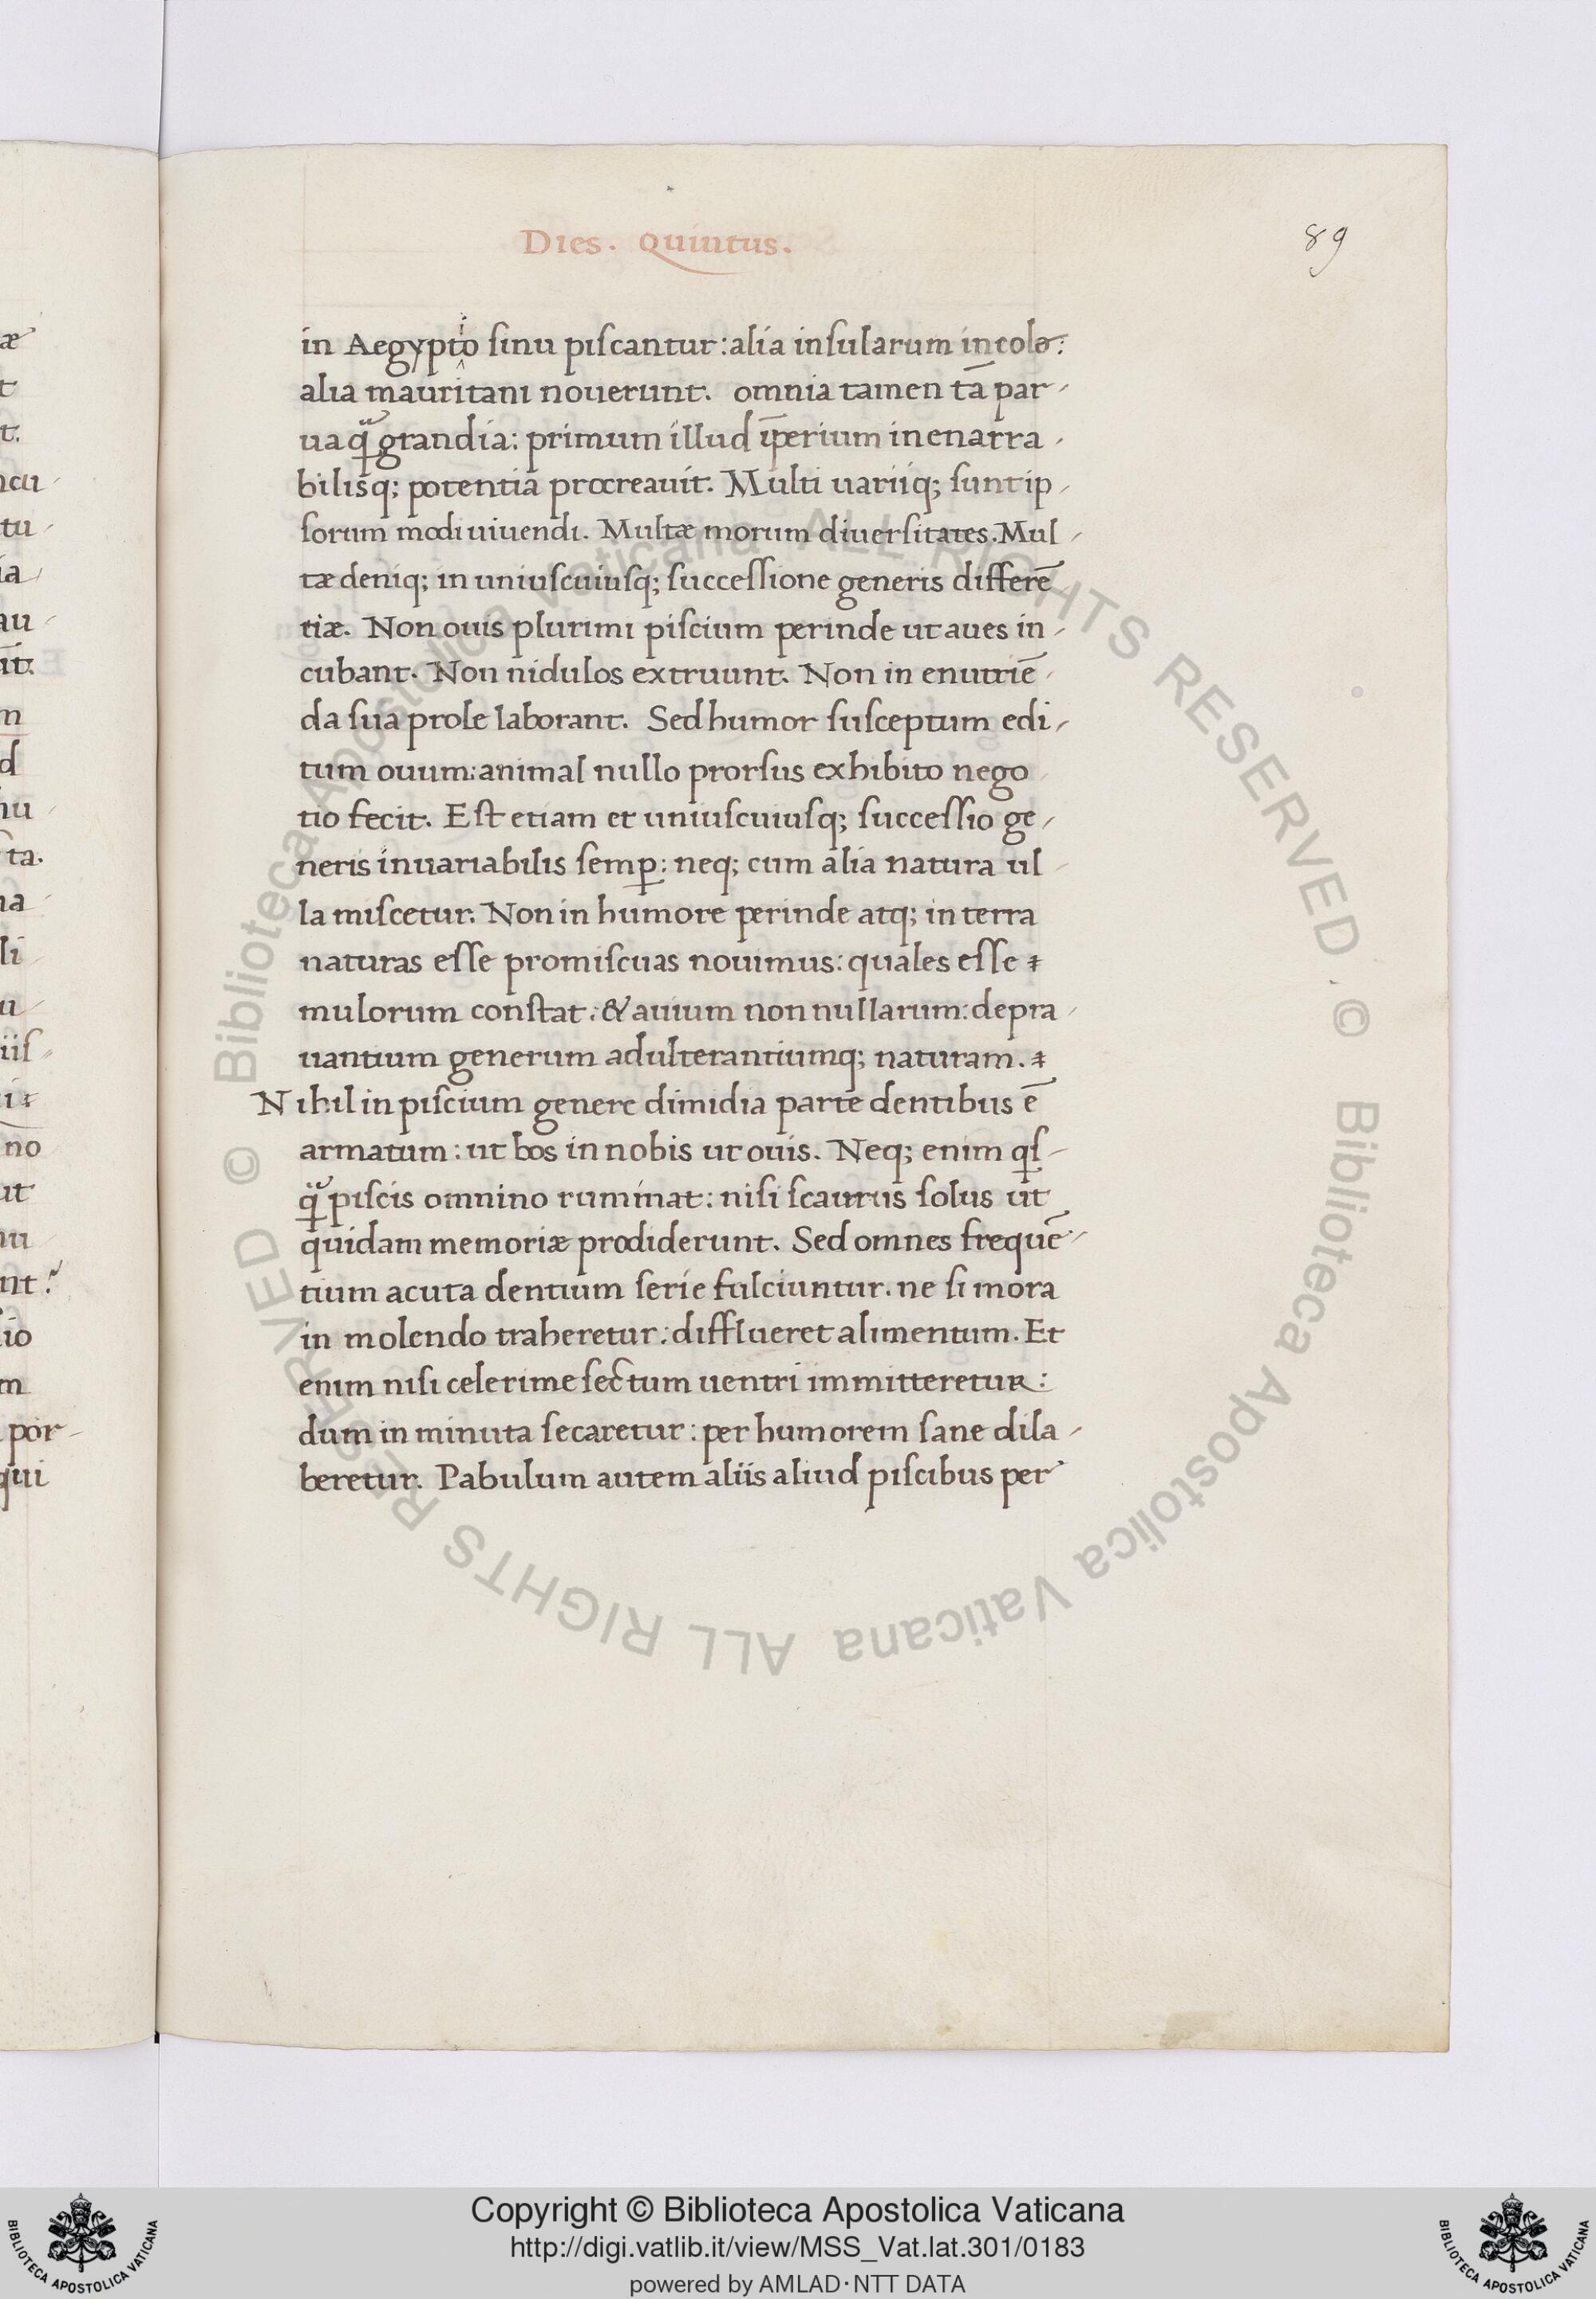 Dies. Quintus.
89
in Aegyptio sinu piscantur: alia insularum incolæ:
alia mauritani nouerunt. omnia tamen tā par-
ua q̈ȝ grandia: primum illud īperium inenarra-
bilisq; potentia procreauit. Multi uariiq; sunt ip-
sorum modi uiuendi. Multæ morum diuersitates. Mul-
tæ deniq; in uniuscuiusq; successione generis differē
tiæ. Non ouis plurimi piscium perinde ut aues in-
cubant. Non nidulos extruunt. Non in enutriē-
da sua prole laborant. Sed humor susceptum edi-
tum ouum: animal nullo prorsus exhibito nego
tio fecit. Est etiam et uniuscuiusq; successio ge-
neris inuariabilis semp̱: neq; cum alia natura ul-
la miscetur. Non in humore perinde atq; in terra
naturas esse promiscuas nouimus: quales esse
mulorum constat: & auium non nullarum: depra-
uantium generum adulterantiumq; naturam.
Nihil in piscium genere dimidia parte dentibus ē
armatum: ut bos in nobis ut ouis. Neq; enim qs-
q̈ piscis omnino ruminat: nisi scaurus solus ut
quidam memoriæ prodiderunt. Sed omnes frequē-
tium acuta dentium serie fulciuntur. ne si mora
in molendo traheretur: difflueret alimentum. Et
enim nisi celerime sectum uentri immitteretur:
dum in minuta secaretur: per humorem sane dila-
beretur. Pabulum autem aliis aliud piscibus per
æ
t
t.
ncu-
tu-
ia
au-
it.
m
d
nu-
ta.
na-
li-
u-
iis-
i
no
ut
nu
nt:
io
m
por-
qui
© Biblioteca Apostolica Vaticana ALL RIGHTS RESERVED. © Biblioteca Apostolica Vaticana ALL RIGHTS RESERVED
Copyright © Biblioteca Apostolica Vaticana
http://digi.vatlib.it/view/MSS_Vat.lat.301/0183
powered by AMLAD·NTT DATA
BIBLIOTECA APOSTOLICA VATICANA
BIBLIOTECA APOSTOLICA VATICANA